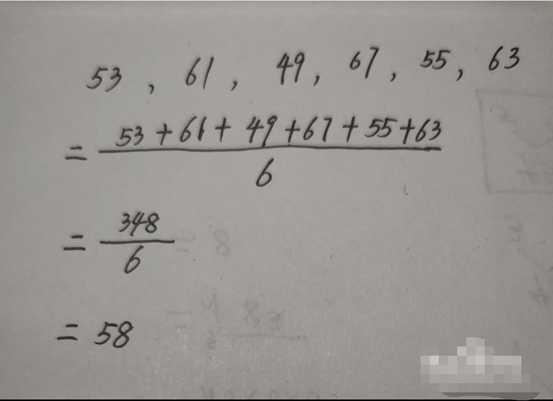 53 , 61 , 49 , 67 , 55 , 63
= 53 + 61 + 49 + 67 + 55 + 63
6
= 348
6
= 58